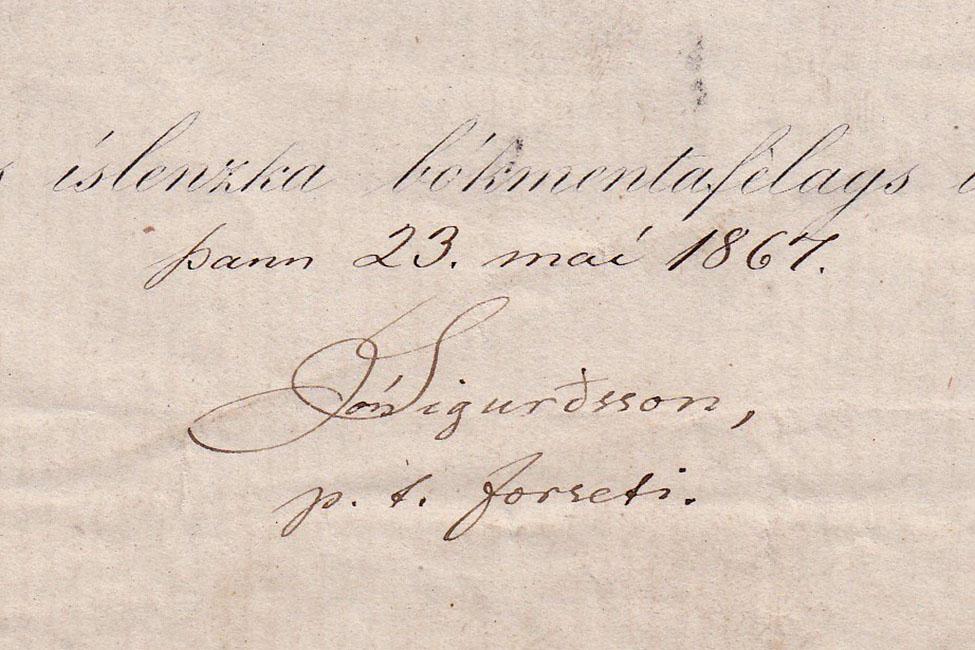 íslenzka bókmentafélags
þann 23. maí 1867.
Jón Sigurðsson,
p. t. forseti.